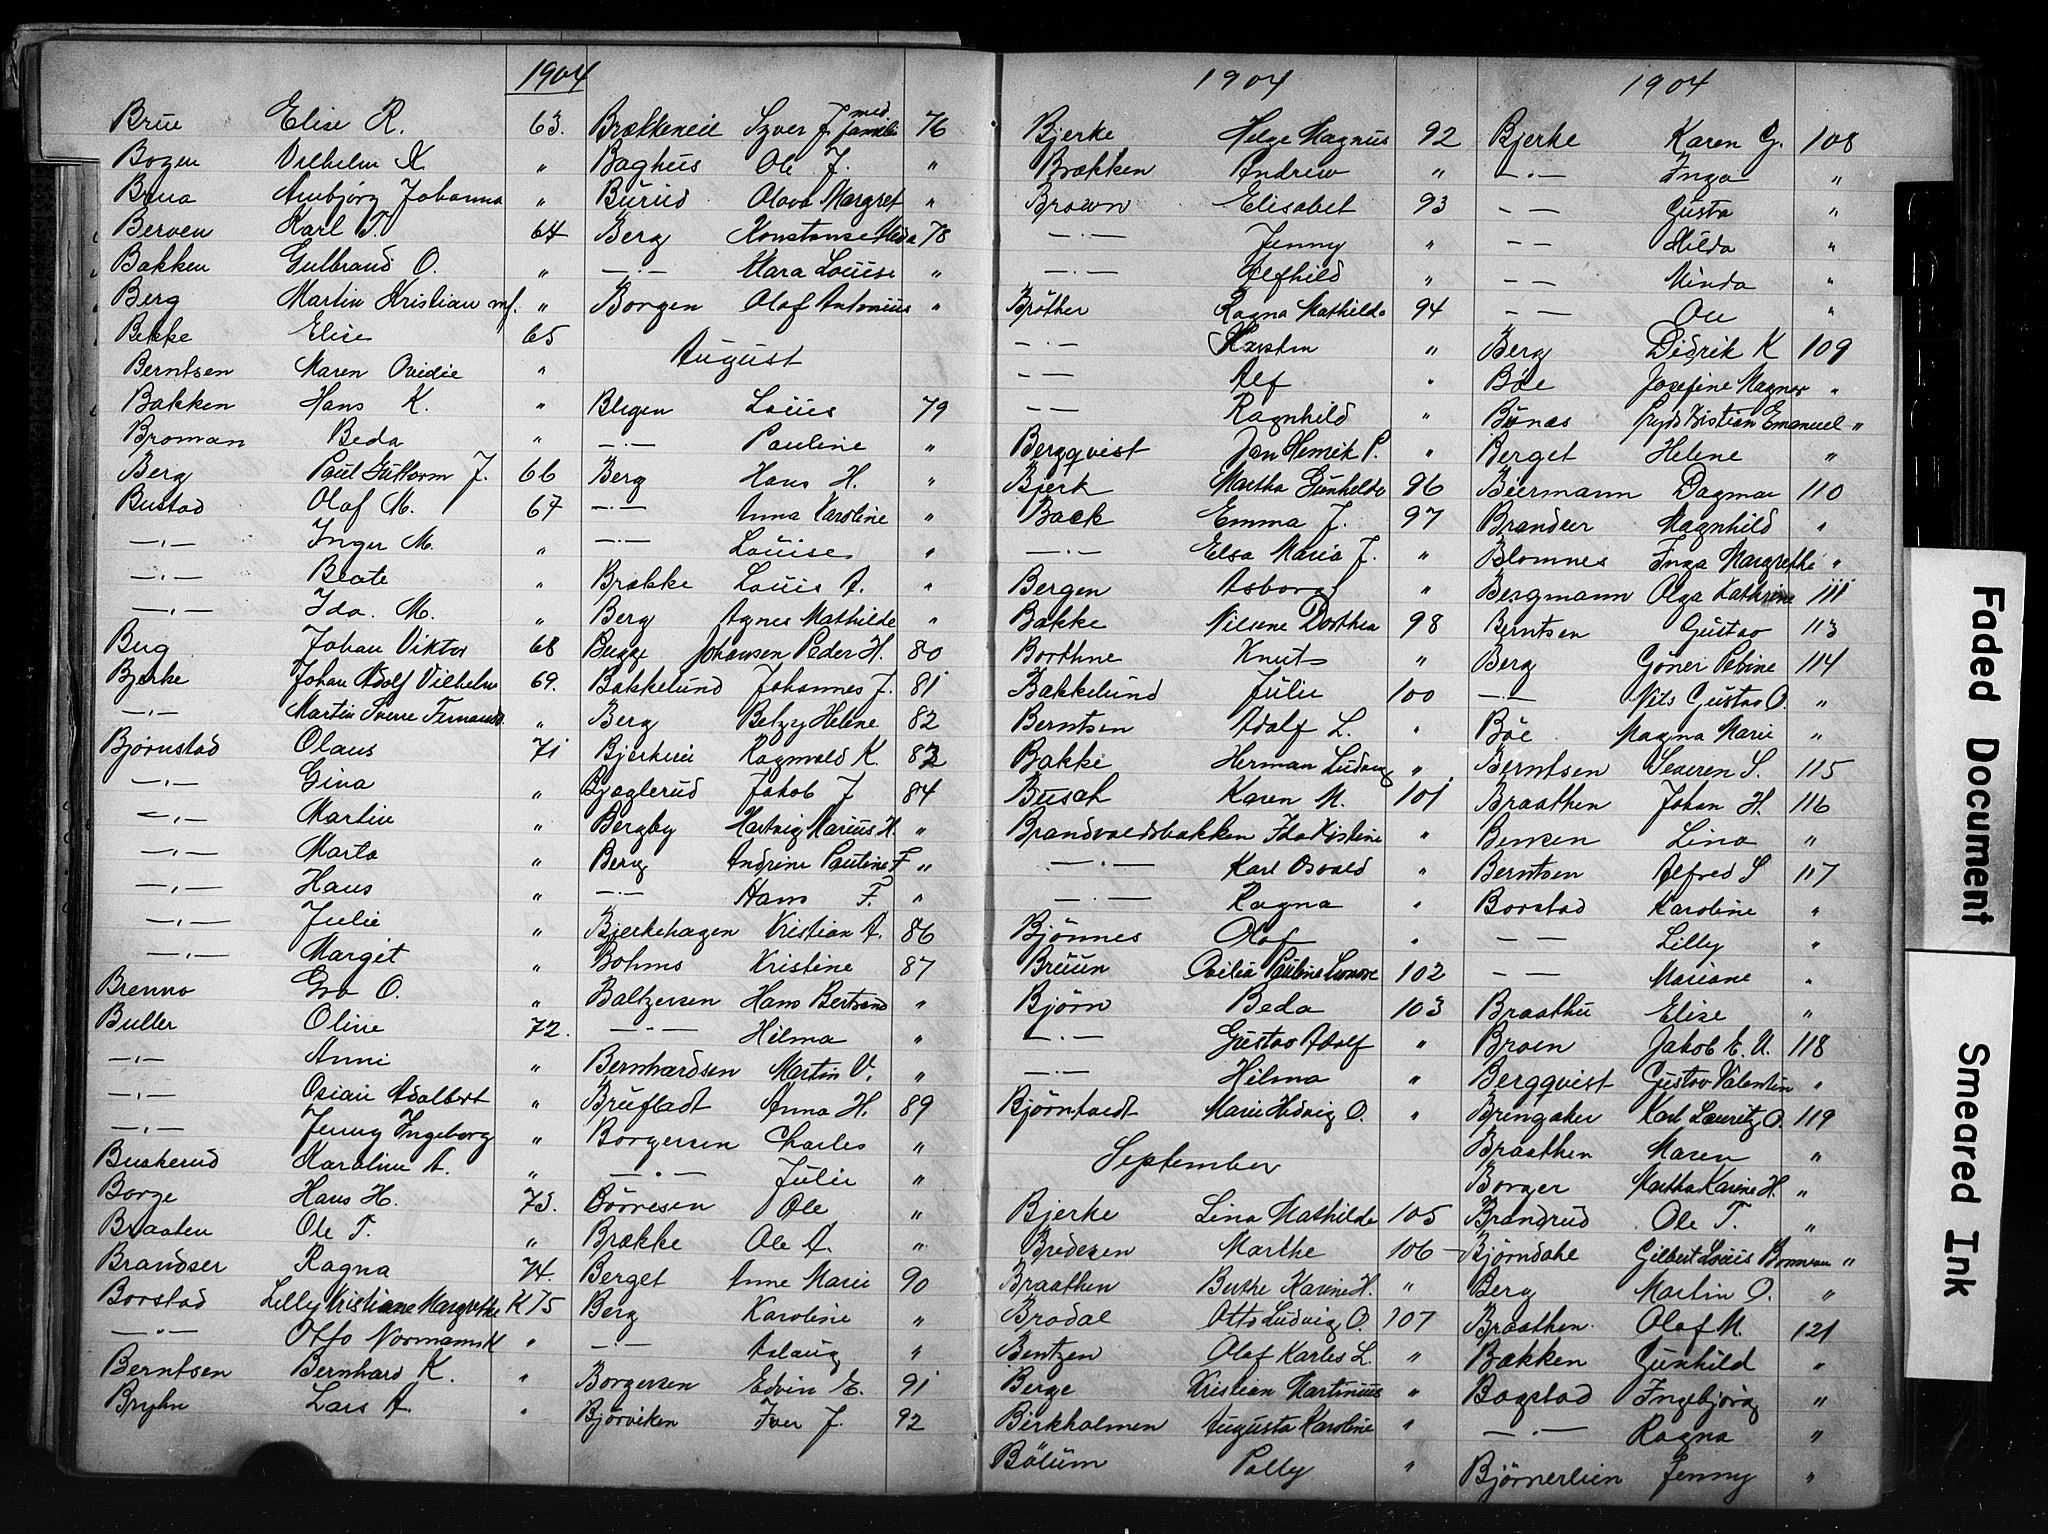 1904
Brue Elise R. 63.
Bogen Vilhelm K. "
Brua Ambjørg Johanna "
Berven Karl T. 64
Bakken Gulbrand O. "
Berg Martin Kristian mf. "
Bekke Elise 65
Berntsen Maren Ovidie "
Bakken Hans K. "
Broman Beda "
Berg Paul Guttorm J. 66
Bustad Olaf M. 67
—„— Inger M. "
—„— Beate "
—„— Ida M. "
Bug Johan Viktor 68
Bjerke Johan Adolf Vilhelm 69.
—„— Martin Sverre Fernando "
Bjørnstad Olaus 71
—„— Gina "
—„— Martin "
—„— Marta "
—„— Hans "
—„— Julie "
—„— Margit "
Brenno Gro O. "
Buller Oline 72.
—„— Anni "
—„— Osian Adalbert "
—„— Jenny Ingeborg "
Buskerud Karoline A. "
Borge Hans H. 73.
Braaten Ole T. "
Brandser Ragna 74.
Borstad Lilly Kristiane Margrethe K 75
—"— Otto Normann K "
Berntsen Bernhard K. "
Bryhn Lars A. "
Brækkeneie Syver J. med familie 76
Baghus Ole J. "
Burud Olava Margret "
Berg Konstanse Heda 78
—"— Klara Louise "
Borgen Olaf Antonius "
August
Bergen Louis 79
—"— Pauline "
Berg Hans H. "
—"— Anna Karoline "
—"— Louise "
Brække Louis A. "
Berg Agnes Mathilde "
Bugge Johansen Peder H. 80
Bakkelund Johannes J. 81
Berg Betzy Helene 82
Bjerkeie Ragnvald K. 83
Bjaglerud Jakob J 84
Bergby Hartvig Marius H. "
Berg Andrine Pauline F "
—"— Hans F. "
Bjerkehagen Kristian A. 86
Bohms Kristine 87
Baltzersen Hans Bertrand "
—"— Hilma "
Bernhardsen Martin V. "
Brufladt Anna H. 89
Borgersen Charles "
—"— Julie "
Børresen Ole "
Brække Ole A. "
Berget Anne Marie 90
Berg Karoline "
—"— Aslaug "
Borgersen Edvin E. 91
Bjørviken Iver J. 92
1904
Bjerke Helge Magnus 92
Brækken Andrew "
Brown Elisabet 93
—"— Jenny "
—"— Alfhild "
Brøther Ragna Mathilde 94
—"— Karsten "
—— Alf "
—— Ragnhild "
Bergqvist Jan Henrik P. "
Bjerk Martha Gunhilda 96
Back Emma J. 97
—"— Elsa Maria J. "
Bergen Asborg "
Bakke Nilsene Dorthea 98
Borthne Knut "
Bakkelund Julie 100
Berntsen Adolf L. "
Bakke Herman Ludvig "
Busch Karen M. 101
Brandvoldsbakken Ida Kristine "
—"— Karl Osvald "
—"— Ragna "
Bjønnes Olaf "
Bruun Ovilia Pauline Leonore 102
Bjørn Beda 103
—"— Gustav Adolf "
—"— Hilma "
Bjørnstadt Marie Hedvig O. "
September
Bjerke Lina Mathilde 105
Bredesen Marthe 106
Braathen Berthe Karine H. "
Brodal Otto Ludvig O. 107
Bentzen Olaf Karles L. "
Berge Kristian Martinius "
Birkholmen Augusta Karoline "
Bölum Polly "
1904
Bjerke Karen G. 108
—"— Inga "
—— Gusta "
—— Hilda "
—— Minda "
—— Ou "
Berg Didrik K 109
Bøe Josefine Magner "
Bönæs Frydskistian Emanuel "
Berget Helene "
Beermann Dagmar 110
Brandeer Magnhild "
Blomnes Inga Margrethe "
Bergmann Olga Kathrine 111
Berntsen Gustav 113
Berg Göner Petrine 114
—"— Nils Gustav O. "
Böe Magna Marie "
Berntsen Severen S. 115
Braathen Johan H. 116
Bensen Lina "
Berntsen Alfred S 117
Borstad Karoline "
—— Lilly "
—— Mariane "
Braathe Elise "
Broen Jakob E. U. 118
Bergqvist Gustav Valentin "
Bringaker Karl Lauritz O. 119
Braathen Maren "
Borger Martha Karine H. "
Brandrud Ole T. "
Bjørndahl Gilbert Louis "
Berg Martin O. "
Braathen Olaf M. 121
Bækken Gunhild "
Bagstad Ingebjørg "
—"— Ragna "
Bjørnerlien Jenny "
Faded Document
Smeared Ink